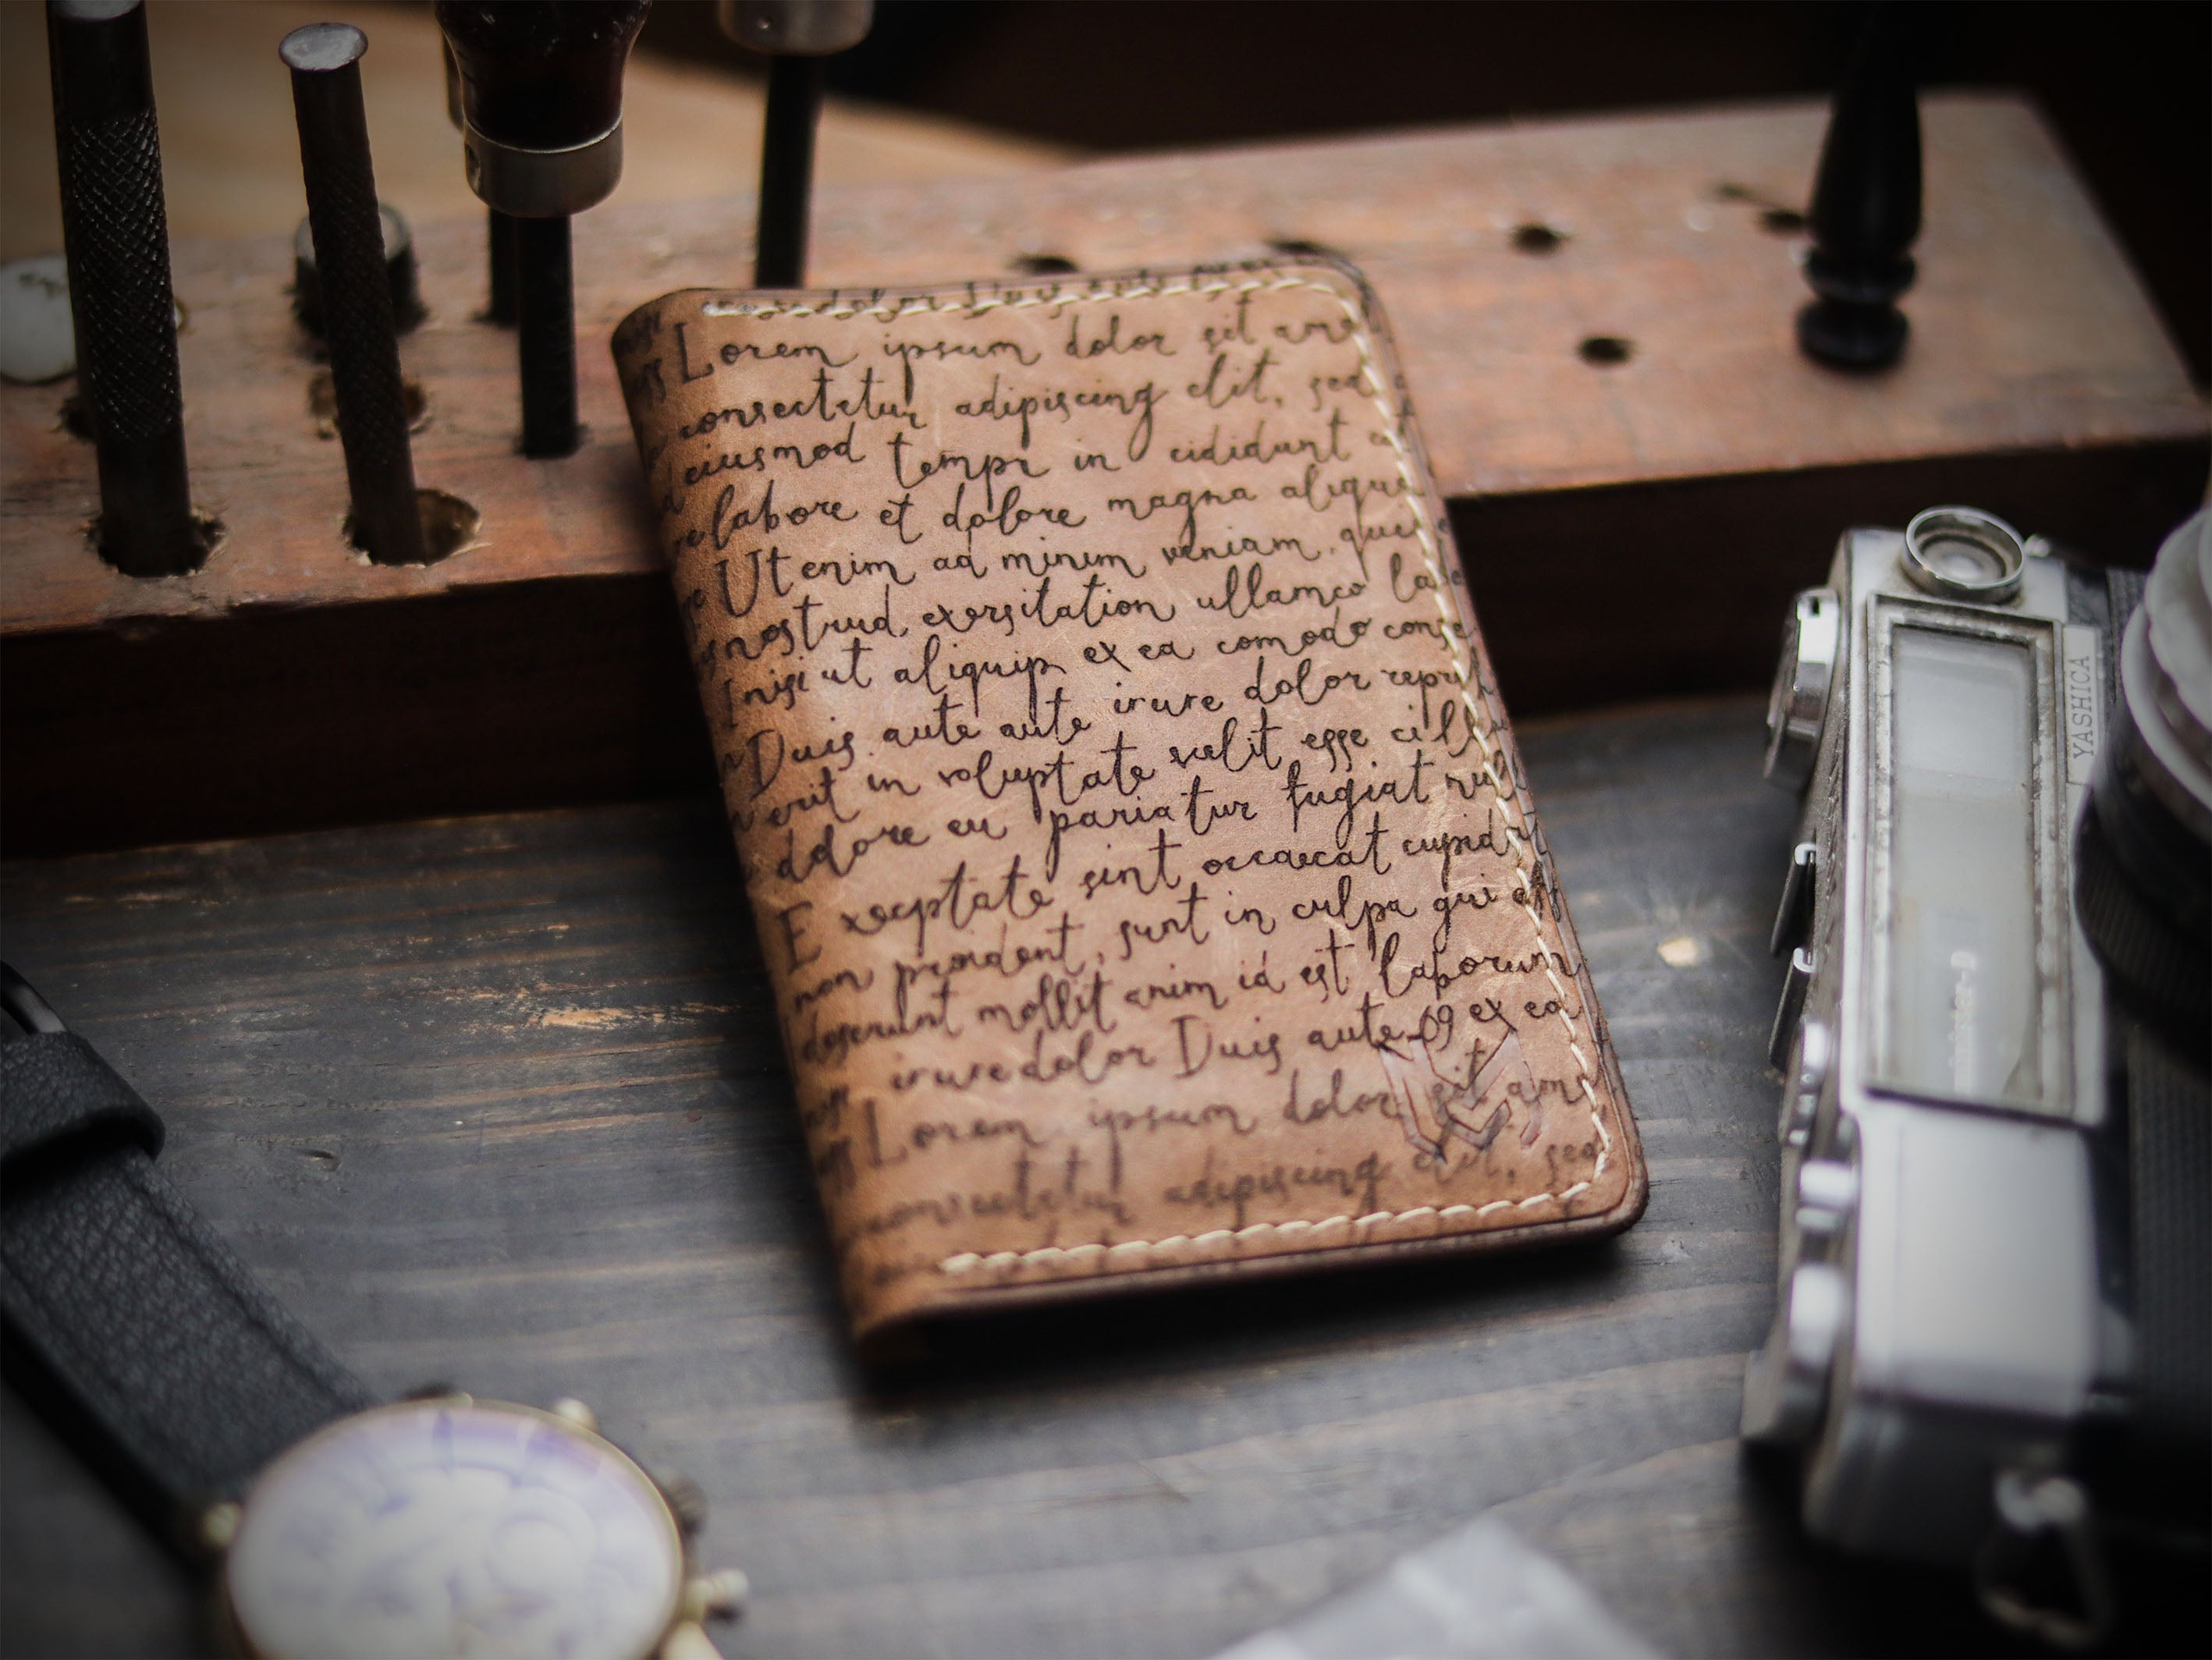 Lorem ipsum dolor sit ame
consectetur adipiscing elit, sed
eiusmod tempr in cididunt ut
re labore et dolore magna aliqua
Ut enim ad minim veniam, quis
nostrud exersitation ullamco la
nisi ut aliquip ex ea comodo conse
Duis aute aute irure dolor repreh
erit in voluptate velit esse cillu
dolore eu pariatur fugiat null
Exceptate sint occaecat cupidat
non proident, sunt in culpa qui off
deserunt mollit anim id est laborum
irure dolor Duis aute 69 ex ea
Lorem ipsum dolor sit ame
consectetur adipiscing elit, sed
YASHICA